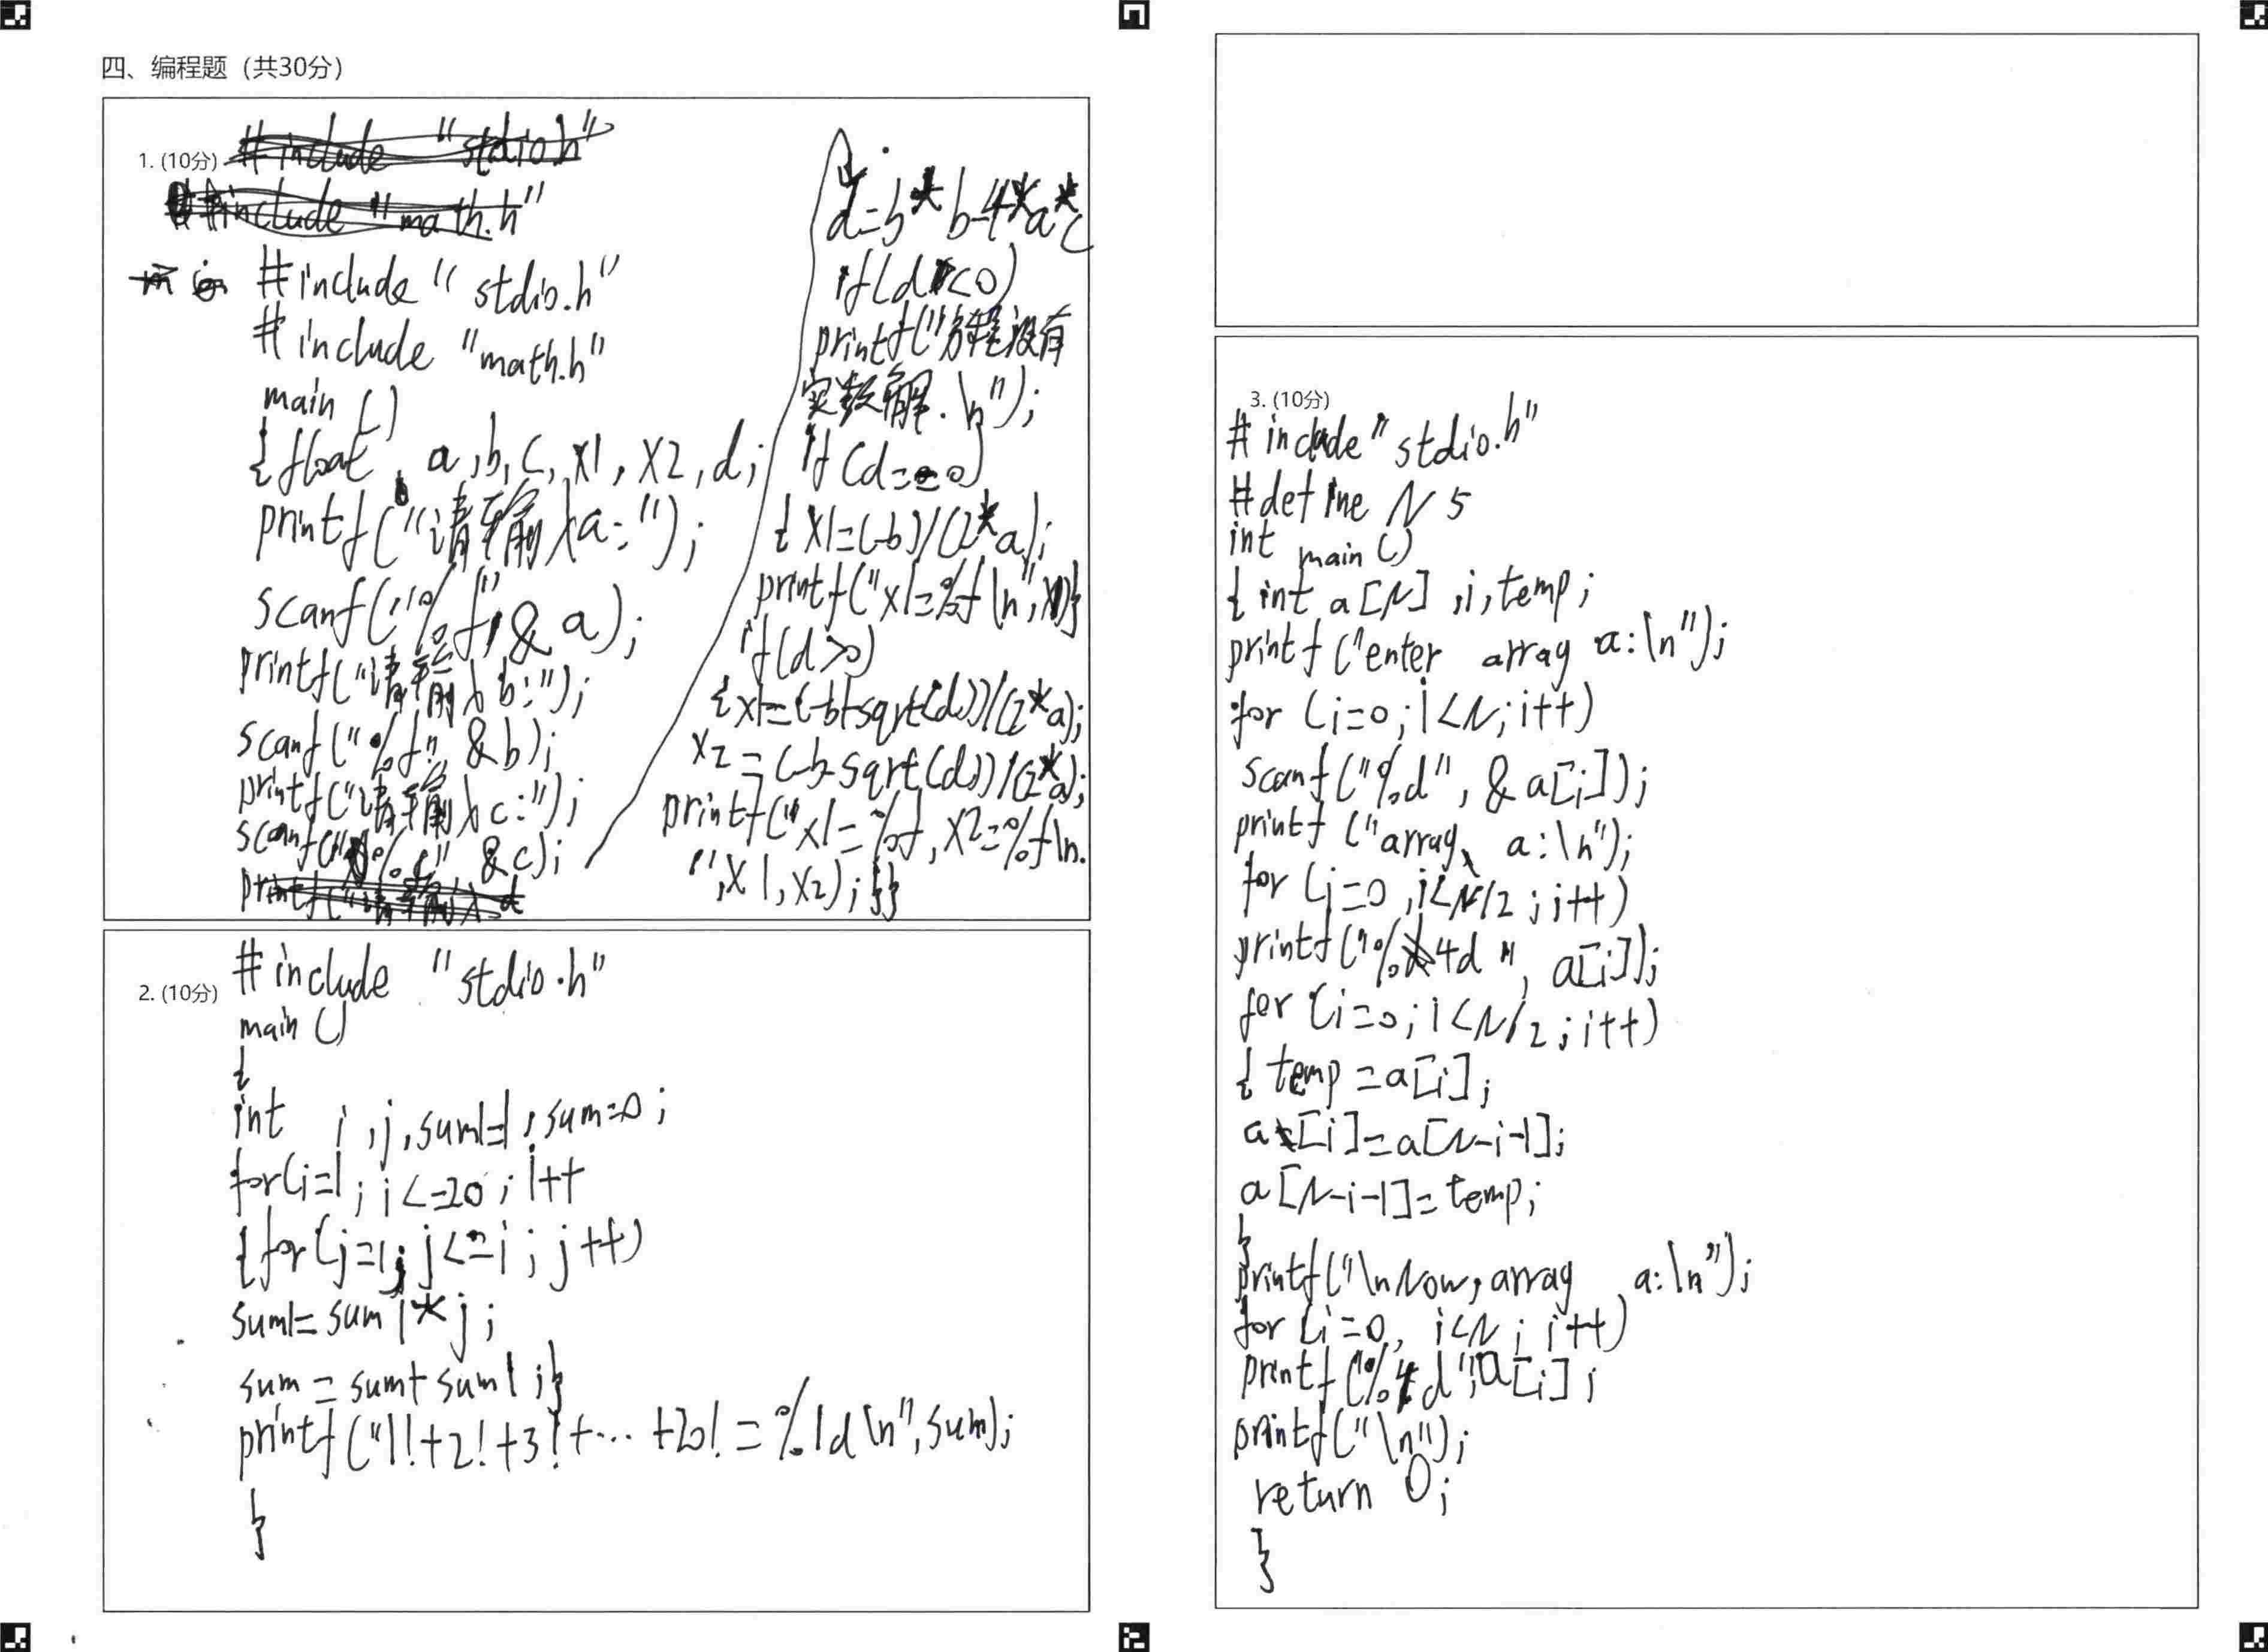 四、编程题（共30分）
1. (10分) #include "stdio.h"
#include "math.h"
#include "stdio.h"
#include "math.h"
main ()
{float a,b,c,x1,x2,d;
printf("请输入a:");
scanf("%f",&a);
printf("请输入b:");
scanf("%f" &b);
printf("请输入c:");
scanf("%f" &c);
printf("请输入d
d=b*b-4*a*c
if(d<0)
printf("方程没有
实数解.\n");
if(d==0)
{x1=(-b)/(2*a);
printf("x1=%f\n",x1)}
if(d>0)
{x1=(-b+sqrt(d))/(2*a);
x2=(-b-sqrt(d))/(2*a);
printf("x1=%f,x2=%f\n.
",x1,x2);}}
2. (10分) #include "stdio.h"
main ()
{
int i,j,sum1=1,sum=0;
for(i=1;i<=20;i++
{for(j=1;j<=i;j++)
sum1=sum1*j;
sum=sum+sum1;}
printf("1!+2!+3!+...+20!=%ld\n",sum);
}
3. (10分)
#include"stdio.h"
#define N 5
int main()
{int a[N],i,temp;
printf("enter array a:\n");
for (i=0;i<N;i++)
scanf("%d", &a[i]);
printf("array、a:\n");
for (i=0,i<N/2;i++)
printf("%4d", a[i]);
for (i=0;i<N/2;i++)
{temp=a[i];
a[i]=a[N-i-1];
a[N-i-1]=temp;
}
printf("\nNow,array a:\n");
for (i=0, i<N; i++)
printf("%4d",a[i];
printf("\n");
return 0;
}